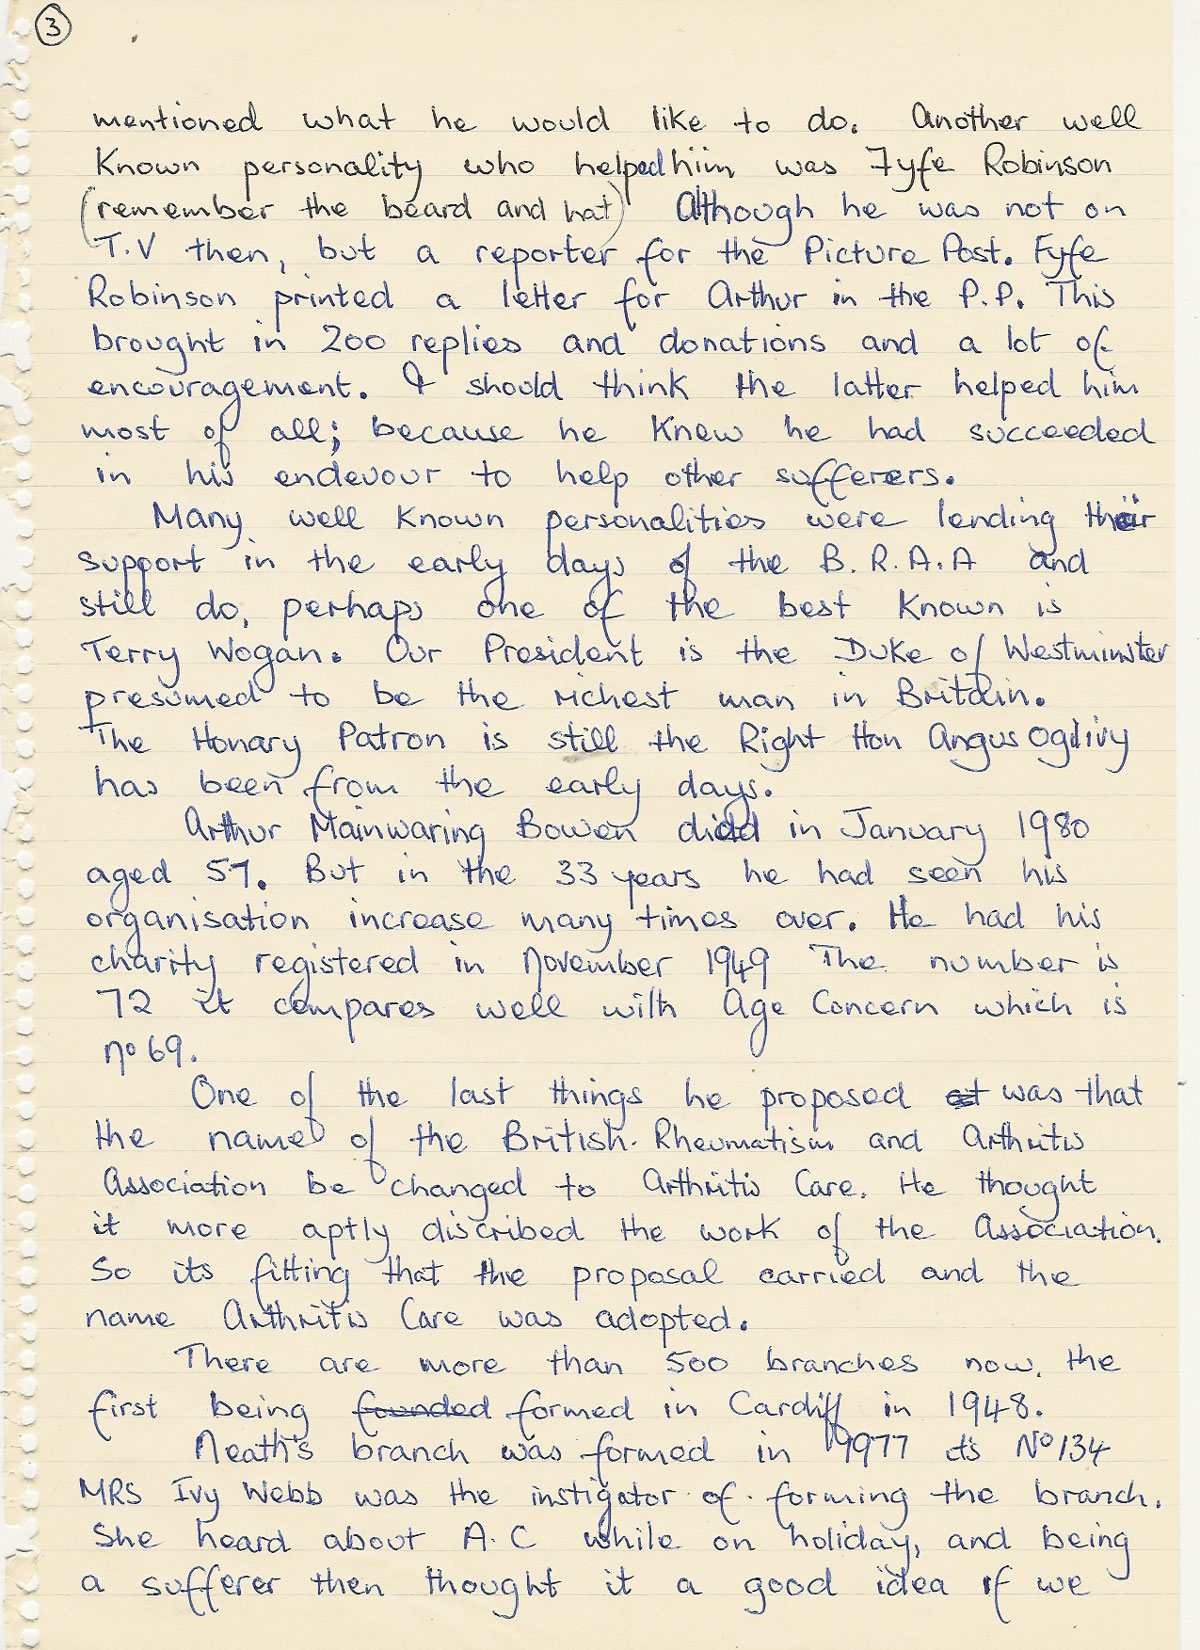 3
mentioned what he would like to do. Another well
Known personality who helped him was Fyfe Robinson
(remember the beard and hat) Although he was not on
T.V then, but a reporter for the Picture Post. Fyfe
Robinson printed a letter for Arthur in the P.P. This
brought in 200 replies and donations and a lot of
encouragement. I should think the latter helped him
most of all; because he Knew he had succeeded
in his endevour to help other sufferers.
Many well Known personalities were lending their
support in the early days of the B.R.A.A and
still do, perhaps one of the best Known is
Terry Wogan. Our President is the Duke of Westminster
presumed to be the richest man in Britain.
The Honary Patron is still the Right Hon Angus Ogilivy
has been from the early days.
Arthur Mainwaring Bowen died in January 1980
aged 57. But in the 33 years he had seen his
organisation increase many times over. He had his
charity registered in November 1949 The number is
72 it compares well with Age Concern which is
no 69.
One of the last things he proposed was that
the name of the British Rheumatism and Arthritis
Association be changed to Arthritis Care. He thought
it more aptly discribed the work of the Association.
So its fitting that the proposal carried and the
name Arthritis Care was adopted.
There are more than 500 branches now. the
first being founded formed in Cardiff in 1948.
Neath's branch was formed in 19977 its No 134
MRS Ivy Webb was the instigator of forming the branch.
She heard about A.C while on holiday, and being
a sufferer then thought it a good idea if we